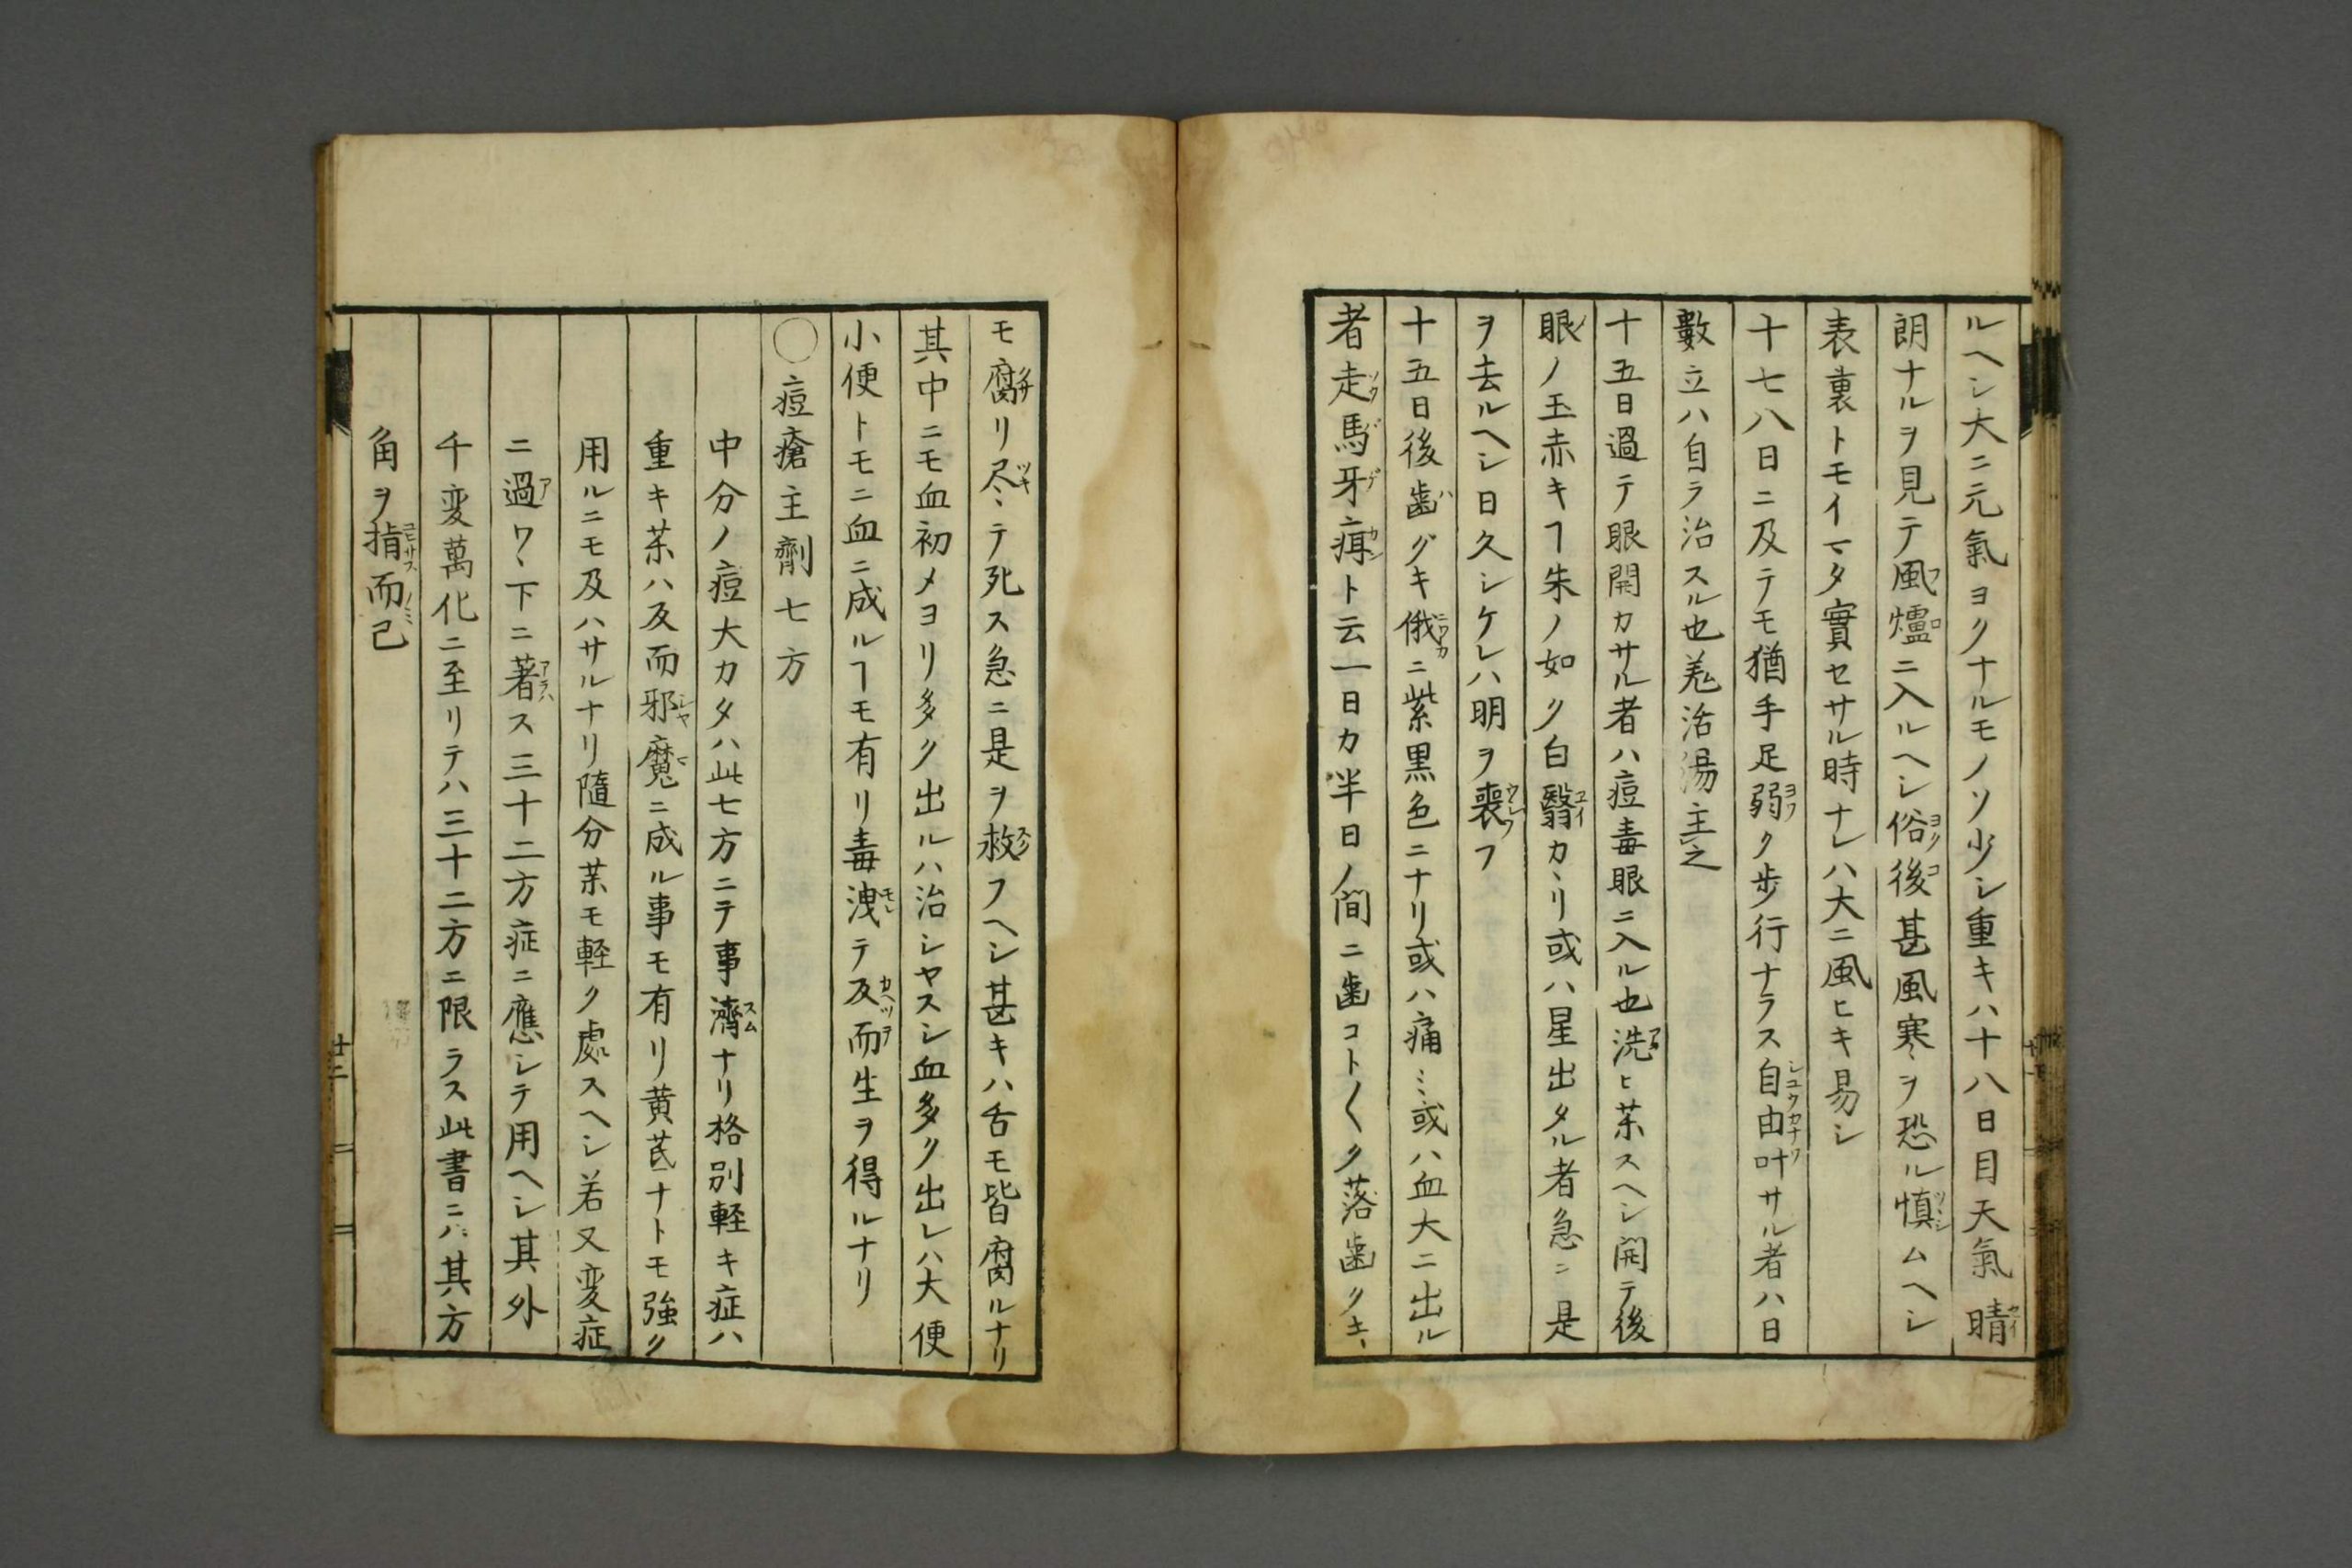 ルヘシ大ニ元氣ヨクナルモノソ少シ重キハ十八日目天氣晴
朗ナルヲ見テ風爐ニ入ルヘシ俗後甚風寒ヲ恐ル慎ムヘシ
表裏トモイマタ實セサル時ナレハ大ニ風ヒキ易シ
十七八日ニ及テモ猶手足弱ク歩行ナラス自由叶サル者ハ日
數立ハ自ラ治スル也羗活湯主之
十五日過テ眼開カサル者ハ痘毒眼ニ入ル也洗ヒ茱スヘシ開テ後
眼ノ玉赤キヿ朱ノ如ク白翳カヽリ或ハ星出タル者急ニ是
ヲ去ルヘシ日久シケレハ明ヲ喪フ
十五日後歯グキ俄ニ紫黒色ニナリ或ハ痛ミ或ハ血大ニ出ル
者走馬牙疳ト云一日カ半日ノ間ニ歯コト〱ク落歯クキ
モ腐リ尽テ死ス急ニ是ヲ救フヘシ甚キハ舌モ皆腐ルナリ
其中ニモ血初メヨリ多ク出ルハ治シヤスシ血多ク出レハ大便
小便トモニ血ニ成ルヿモ有リ毒洩テ及而生ヲ得ルナリ
○痘瘡主劑七方
中分ノ痘大カタハ此七方ニテ事濟ナリ格別軽キ症ハ
重キ茱ハ及而邪魔ニ成ル事モ有リ黄芪ナトモ強ク
用ルニモ及ハサルナリ隨分茱モ軽ク處スヘシ若又変症
ニ過ワヽ下ニ著ス三十二方症ニ應シテ用ヘシ其外
千変萬化ニ至リテハ三十二方ニ限ラス此書ニハ其方
角ヲ指而己
廿二